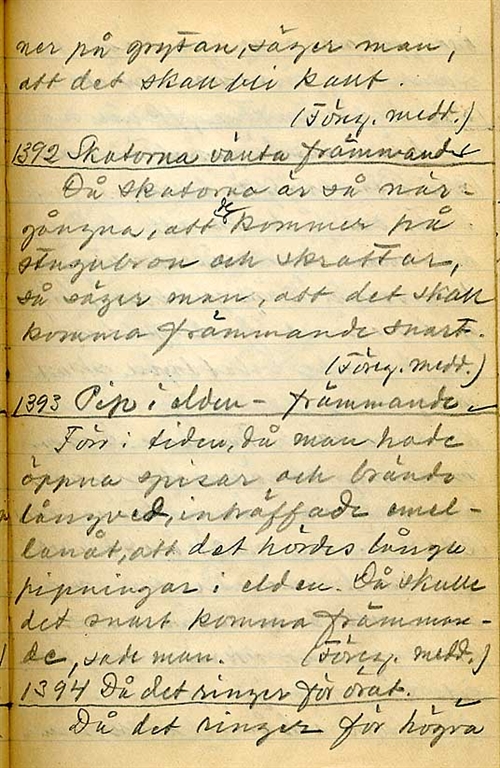 ner på grytan, säger man,
att det skall bli kallt.
(Föreg. medd.)
1392 Skatorna vänta främmande
Då skatorna är så när-
gångna, att de kommer på
stugubron och skrattar,
så säger man, att det skall
komma främmande snart.
(Föreg. medd.)
1393 Pip i elden - främmande.
Förr i tiden, då man hade
öppna spisar och brände
långved, inträffade emel-
lanåt, att det hördes långa
pipningar i elden. Då skulle
det snart komma främman-
de, sade man. (Föreg. medd.)
1394 Då det ringer för örat.
Då det ringer för högra